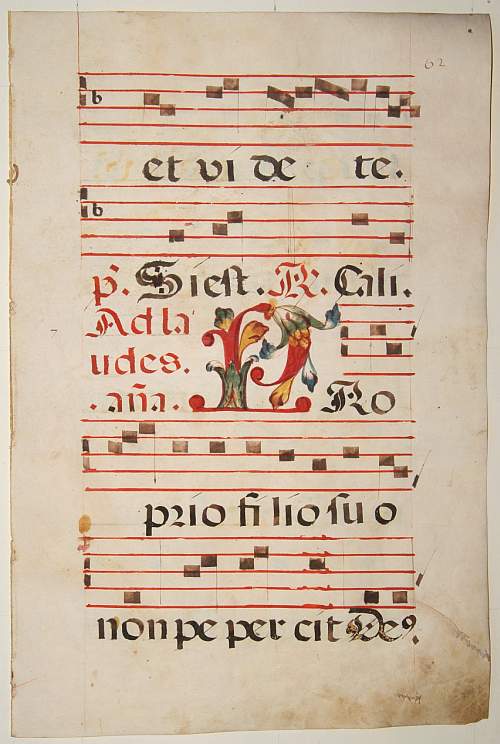 62
et vi de te.
p̃. Si est. R. Cali.
Ad la
udes.
. aña. P RO
prio fi lio su o
non pe per cit De9.